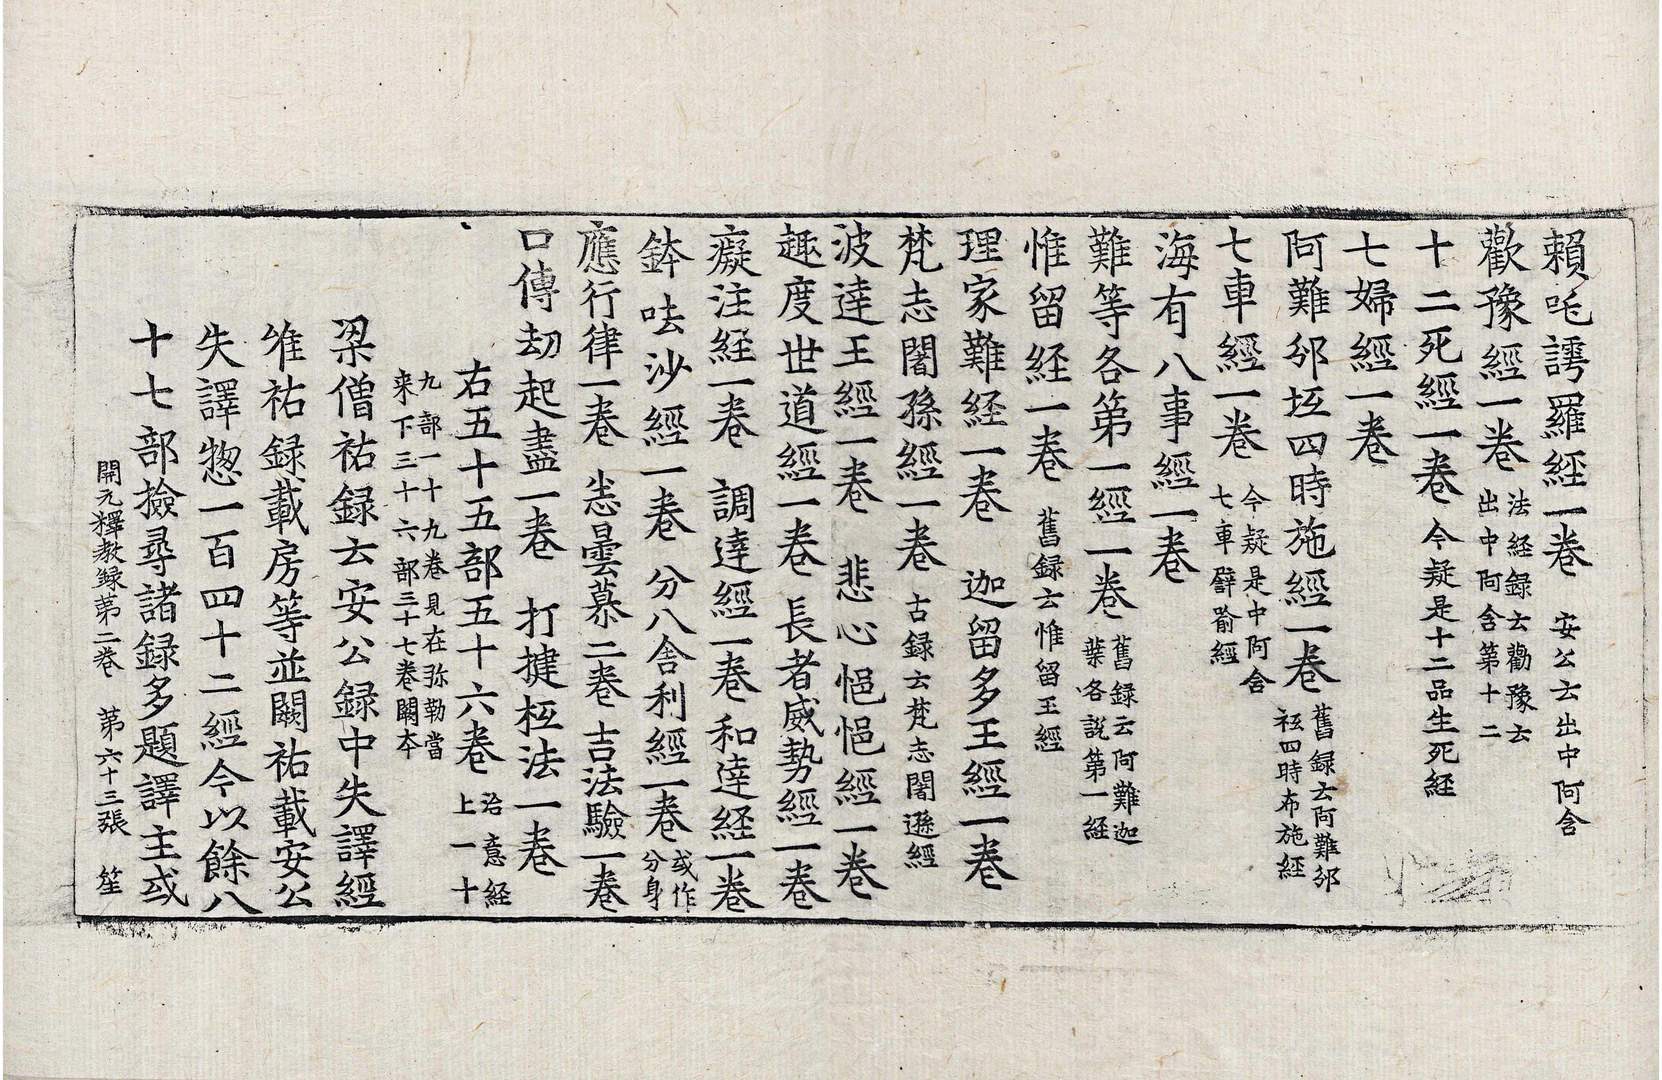 頼吒謣羅經一卷 安公云出中阿含
歡豫經一卷 法經録云勸豫云出中阿含第十二
十二死經一卷 今疑是十二品生死経
七婦經一卷
阿難邠坻四時施經一卷 舊録云阿難邠袛四時布施経
七車經一卷 今疑是中阿含七車譬喻經
海有八事經一卷
難等各第一經一卷 舊録云阿難迦葉各説第一経
惟留経一卷 舊録云惟留王經
理家難経一卷 迦留多王經一卷
梵志闍孫經一卷 古録云梵志闍遜經
波達王經一卷 悲心悒悒經一卷
趣度世道經一卷 長者威勢經一卷
癡注経一卷 調達經一卷 和達経一卷
鉢呿沙經一卷 分八舎利經一卷 或作分身
應行律一卷 恙曇慕二卷 吉法驗一卷
口傳劫起盡一卷 打揵柾法一卷
右五十五部五十六卷 治意経上一十
九部一十九卷見在弥勒當来下三十六部三十七卷闕夲
梁僧祐録云安公録中失譯經
唯祐録載房等並闕祐載安公
失譯惣一百四十二經今以餘八
十七部撿尋諸録多題譯主或
開元釋教録第二卷 第六十三張 笙